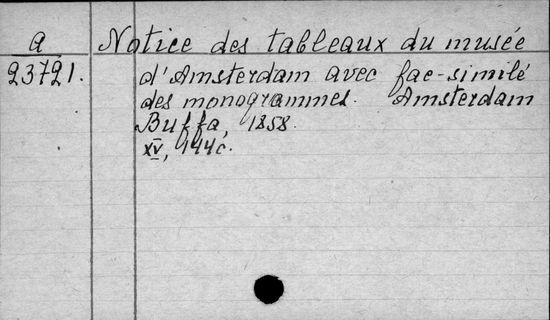 a
Notice des tableaux du musée
23721.
d'Amsterdam avec fac-similé
des monogrammes. Amsterdam
Buffa, 1858.
XV, 144 с.